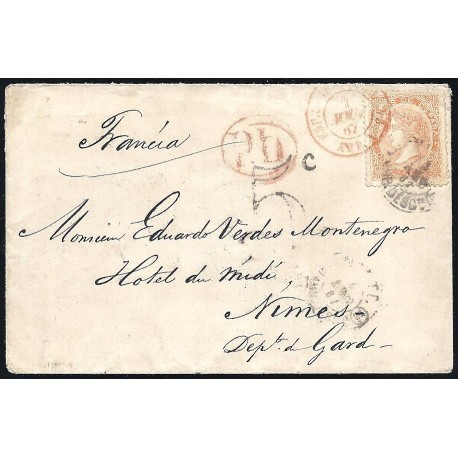 Francia
P.D.
C
5
Monsieur Eduardo Verdes Montenegro
Hotel du midi
Nîmes
Dept. d Gard